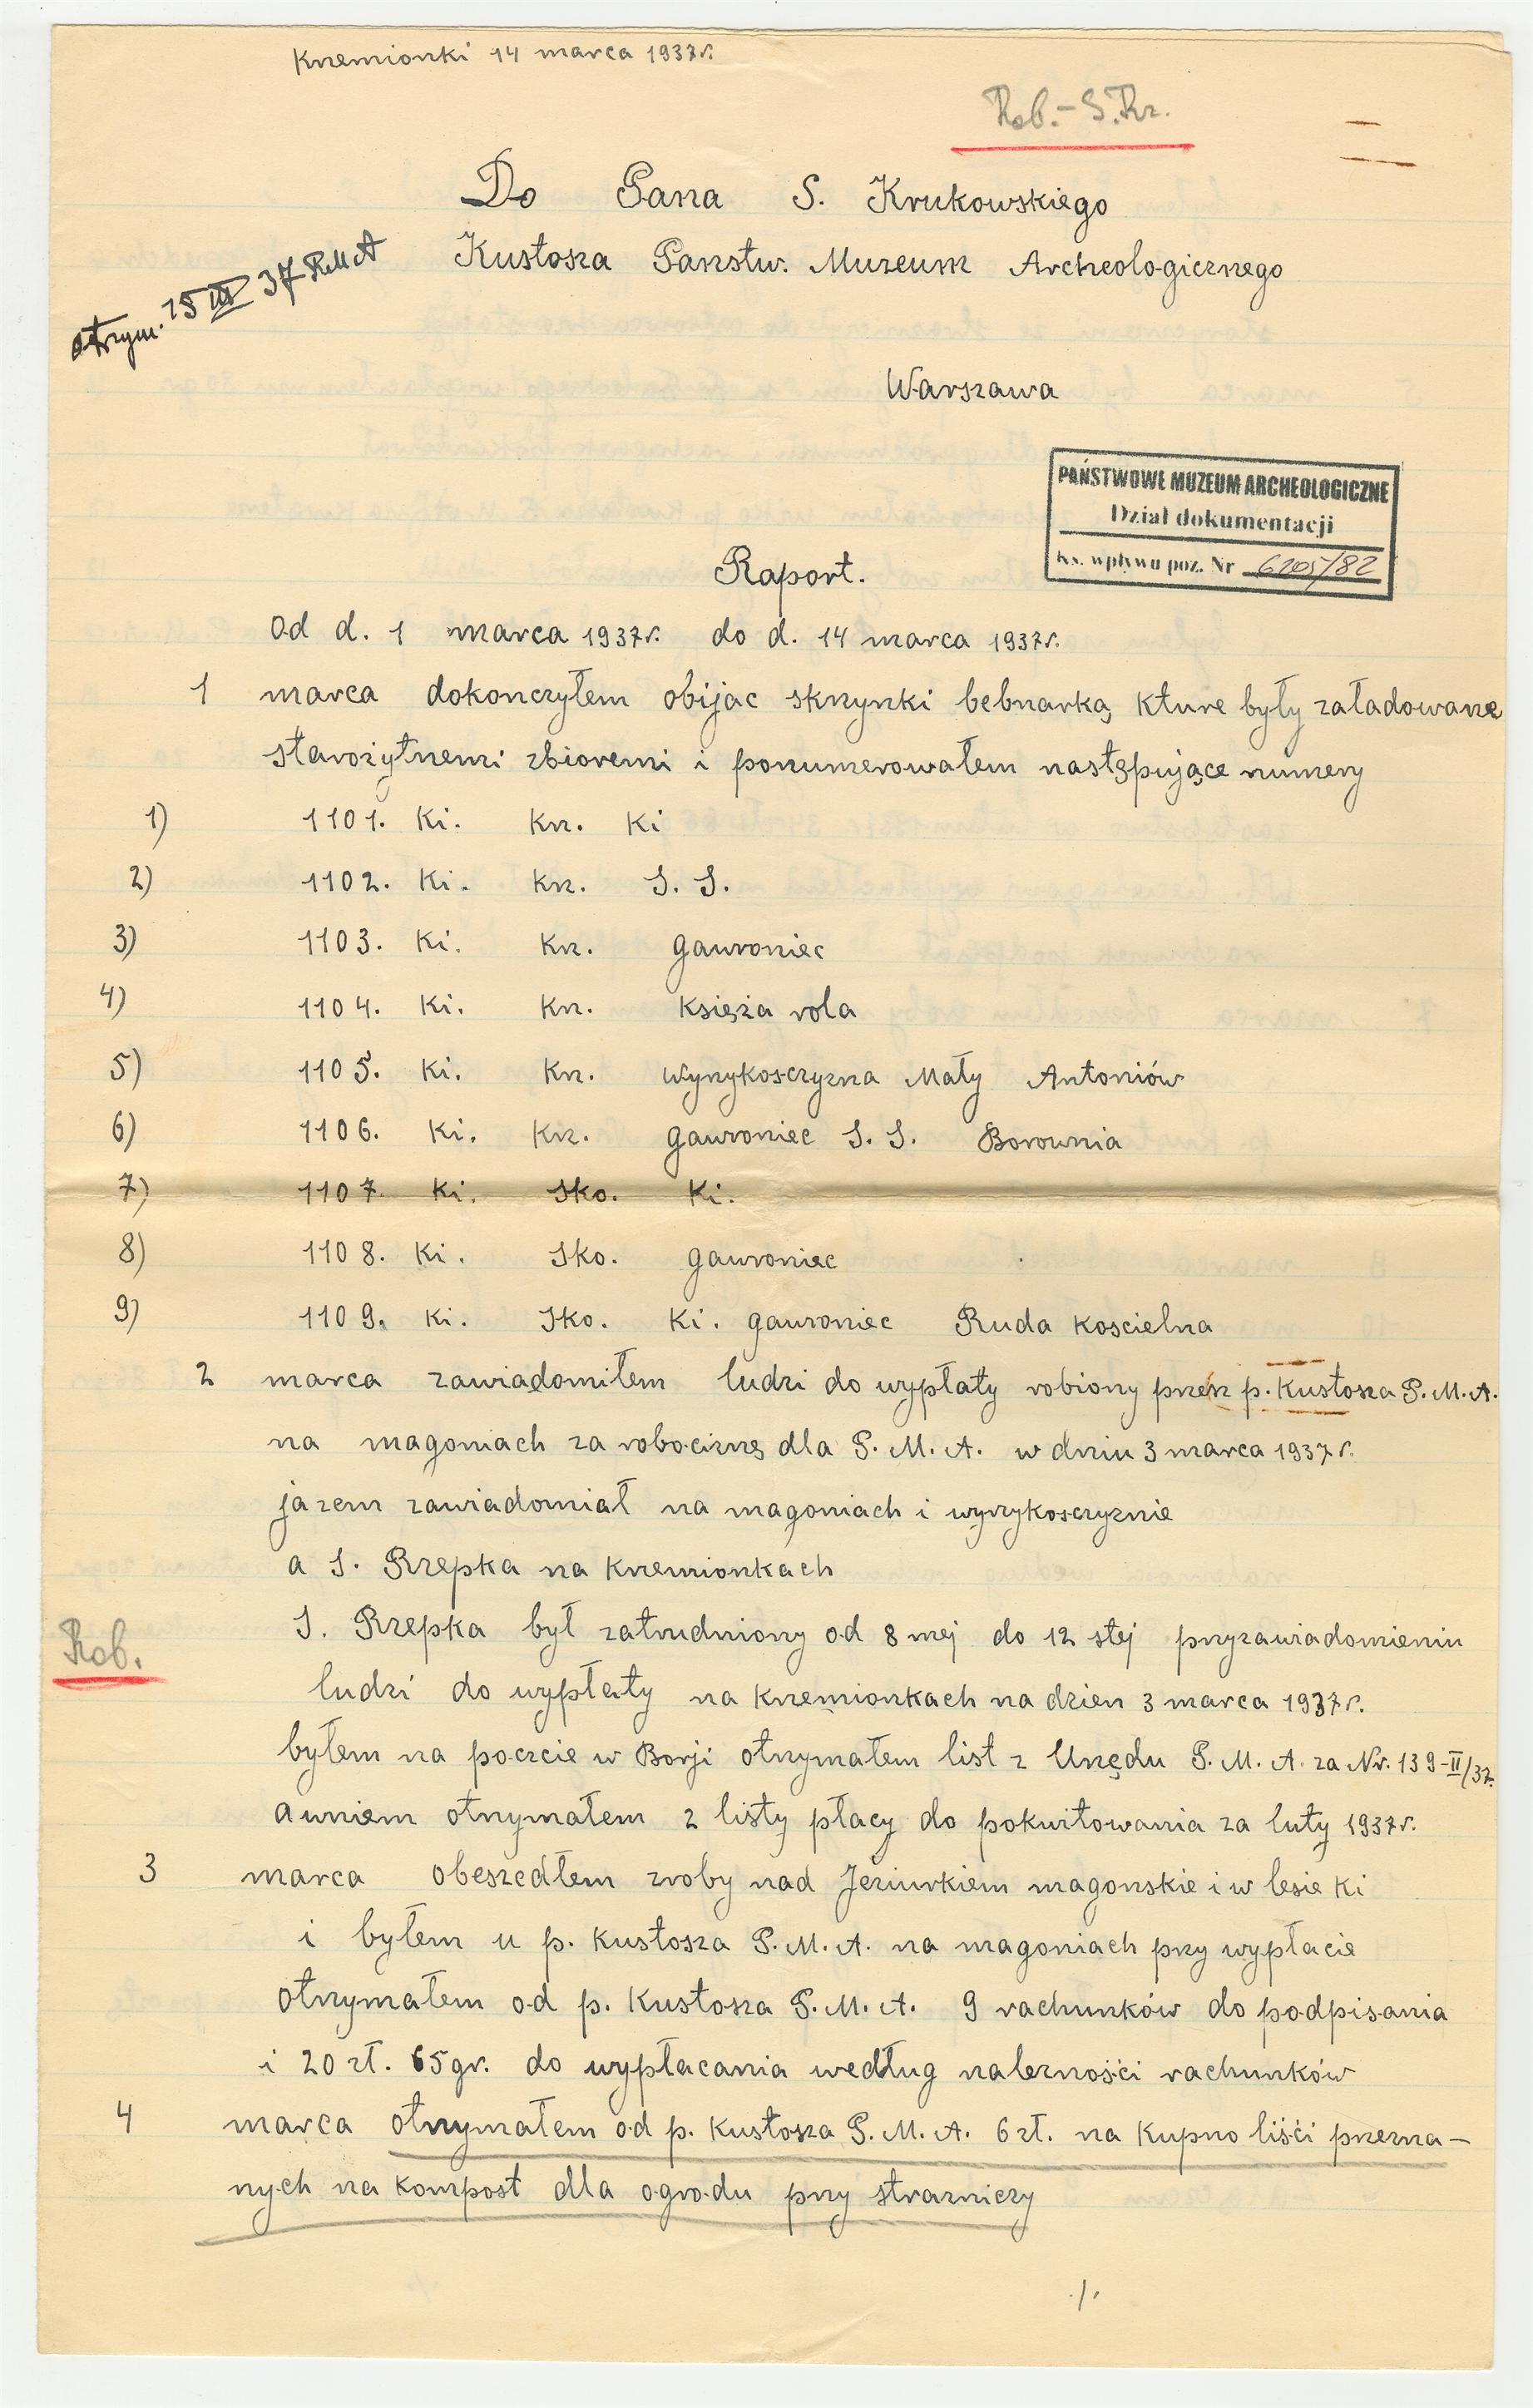 Krzemionki 14 marca 1937r.
Rob. – S. Kr.
Do Pana S. Krukowskiego
Kustosza Państw. Muzeum Archeologicznego
otrzym. 15 III 37 RMA
Warszawa
PAŃSTWOWE MUZEUM ARCHEOLOGICZNE
Dział dokumentacji
Ks. wpływu poz. Nr 6205/82
Raport.
Od d. 1 marca 1937r. do d. 14 marca 1937r.
1 marca dokonczyłem obijac skrzynki bebnarką kture były załadowane
starożytnemi zbioremi i ponumerowałem następujące numery
1) 1101. Ki. Krz. Ki
2) 1102. Ki. Krz. S. S.
3) 1103. Ki. Krz. gawroniec
4) 1104. Ki. Krz. Księża rola
5) 1105. Ki. Krz. wyrzykosczyzna Mały Antoniów
6) 1106. Ki. Krz. gawroniec S. S. Borownia
7) 1107. Ki. Sko. Ki.
8) 1108. Ki. Sko. gawroniec
9) 1109. Ki. Sko. Ki. gawroniec Ruda koscielna
2 marca zawiądomiłem ludzi do wypłaty robiony przez p. Kustosza P. M. A.
na magoniach za robociznę dla P. M. A. w dniu 3 marca 1937r.
jazem zawiadomiał na magoniach i wyrzykosczyznie
a S. Rzepka na Krzemionkach
S. Rzepka był zatrudniony od 8 mej do 12 stej przyzawiadomieniu
Rob.
ludzi do wypłaty na krzemionkach na dzien 3 marca 1937r.
byłem na poczcie w Borji otrzymałem list z Urzędu P. M. A. za Nr. 139-II/37.
awniem otrzymałem 2 listy płacy do pokwitowania za luty 1937r.
3 marca obeszedłem zroby nad Jeziurkiem magonskie i w lesie Ki
i byłem u p. Kustosza P. M. A. na magoniach przy wypłacie
otrzymałem od p. Kustosza P. M. A. 9 rachunków do podpisania
i 20 zł. 65 gr. do wypłacania według nalezności rachunków
4 marca otrzymałem od p. Kustosza P. M. A. 6 zł. na kupno liści przezna–
nych na kompost dla ogrodu przy strazniczy
./.